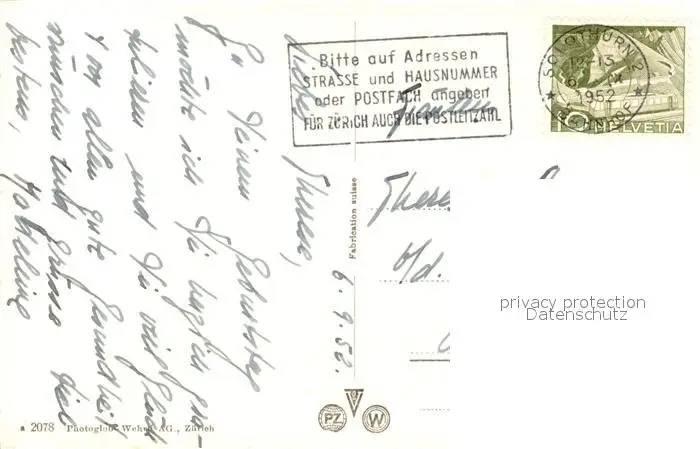 6. 9. 52.
Liebe Therese,
Zu Deinem Geburtstag
möchte ich Dir herzlich gra-
tulieren und Dir viel Glück
+ vor allem gute Gesundheit
wünschen und grüsse Dich
bestens,
Madeleine
Bitte auf Adressen
STRASSE und HAUSNUMMER
oder POSTFACH angeben
FÜR ZÜRICH AUCH DIE POSTLEITZAHL
SOLOTHURN 2
12-13
IX
1952
10 HELVETIA
Fräulein
b/d.
Fabrication suisse
privacy protection
Datenschutz
PZ
W
2078 Photoglob-Wehrli AG., Zürich